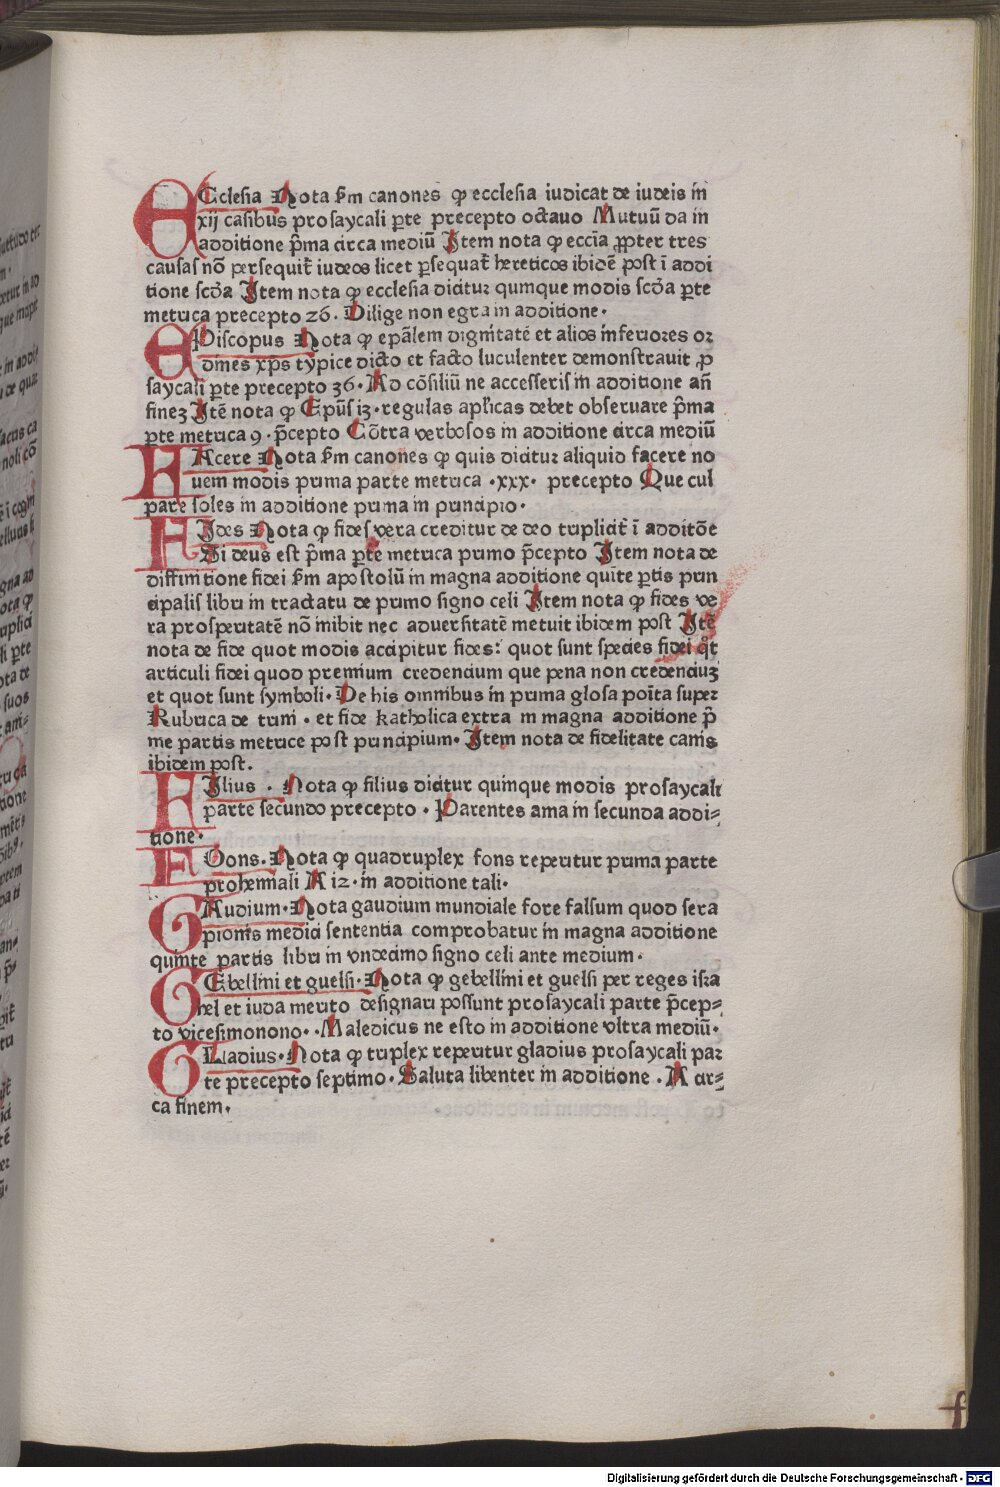 ECclesia Nota ẜm canones ꝙ ecclesia iudicat de iudeis in
xij casibus prosaycali ꝑte precepto octauo Mutuū da in
additione p̄ma circa mediū Item nota ꝙ eccīa ꝓpter tres
causas nō persequit̄ iudeos licet ꝑsequat̄ hereticos ibidē post ī addi
tione scd̄a Item nota ꝙ ecclesia dicitur qumque modis scd̄a ꝑte
metrica precepto 26. Dilige non egra in additione.
EPiscopus Nota ꝙ epālem dignitatē et alios inferiores or
dines xp̄s typice dicto et facto luculenter demonstrauit ꝓ
saycali ꝑte precepto 36. Ad cōsiliū ne accesseris in additione an̄
finez Itē nota ꝙ Ep̄us 13. regulas apl̄icas debet obseruare p̄ma
ꝑte metrica 9. p̄cepto Cōtra verbosos in additione circa mediū
FAcere Nota ẜm canones ꝙ quis dicitur aliquid facere no
uem modis prima parte metrica .xxx. precepto Que cul
pare soles in additione prima in principio.
FIdes Nota ꝙ fides vera creditur de deo triplicit̄ ī additōe
Si deus est p̄ma ꝑte metrica primo p̄cepto Item nota de
diffinitione fidei ẜm apostolū in magna additione quīte ꝑtis prin
cipalis libri in tractatu de primo signo celi Item nota ꝙ fides ve
ra prosperitatē nō inibit nec aduersitatē metuit ibidem post Itē
nota de fide quot modis accipitur fides: quot sunt species fidei qͦt
articuli fidei quod premium credencium que pena non credenciuz
et quot sunt symboli. De his omnibus in prima glosa poīta super
Rubrica de trini . et fide katholica extra in magna additione p̄
me partis metrice post principium. Item nota de fidelitate canis
ibidem post.
FIlius . Nota ꝙ filius dicitur quinque modis prosaycali
parte secundo precepto . Parentes ama in secunda addi⸗
tione.
FOons. Nota ꝙ quadruplex fons reperitur prima parte
prohemiali A 12. in additione tali.
GAudium. Nota gaudium mundiale fore falsum quod sera
pionis medici sententia comprobatur in magna additione
quinte partis libri in vndecimo signo celi ante medium.
GEbellini et guelfi. Nota ꝙ gebellini et guelfi per reges isra
hel et iuda merito designari possunt prosaycali parte p̄cep⸗
to vicesimonono. .Maledicus ne esto in additione vltra mediū.
GLadius. Nota ꝙ triplex reperitur gladius prosaycali par
te precepto septimo. Saluta libenter in additione . A cir⸗
ca finem.
Digitalisierung gefördert durch die Deutsche Forschungsgemeinschaft - DFG